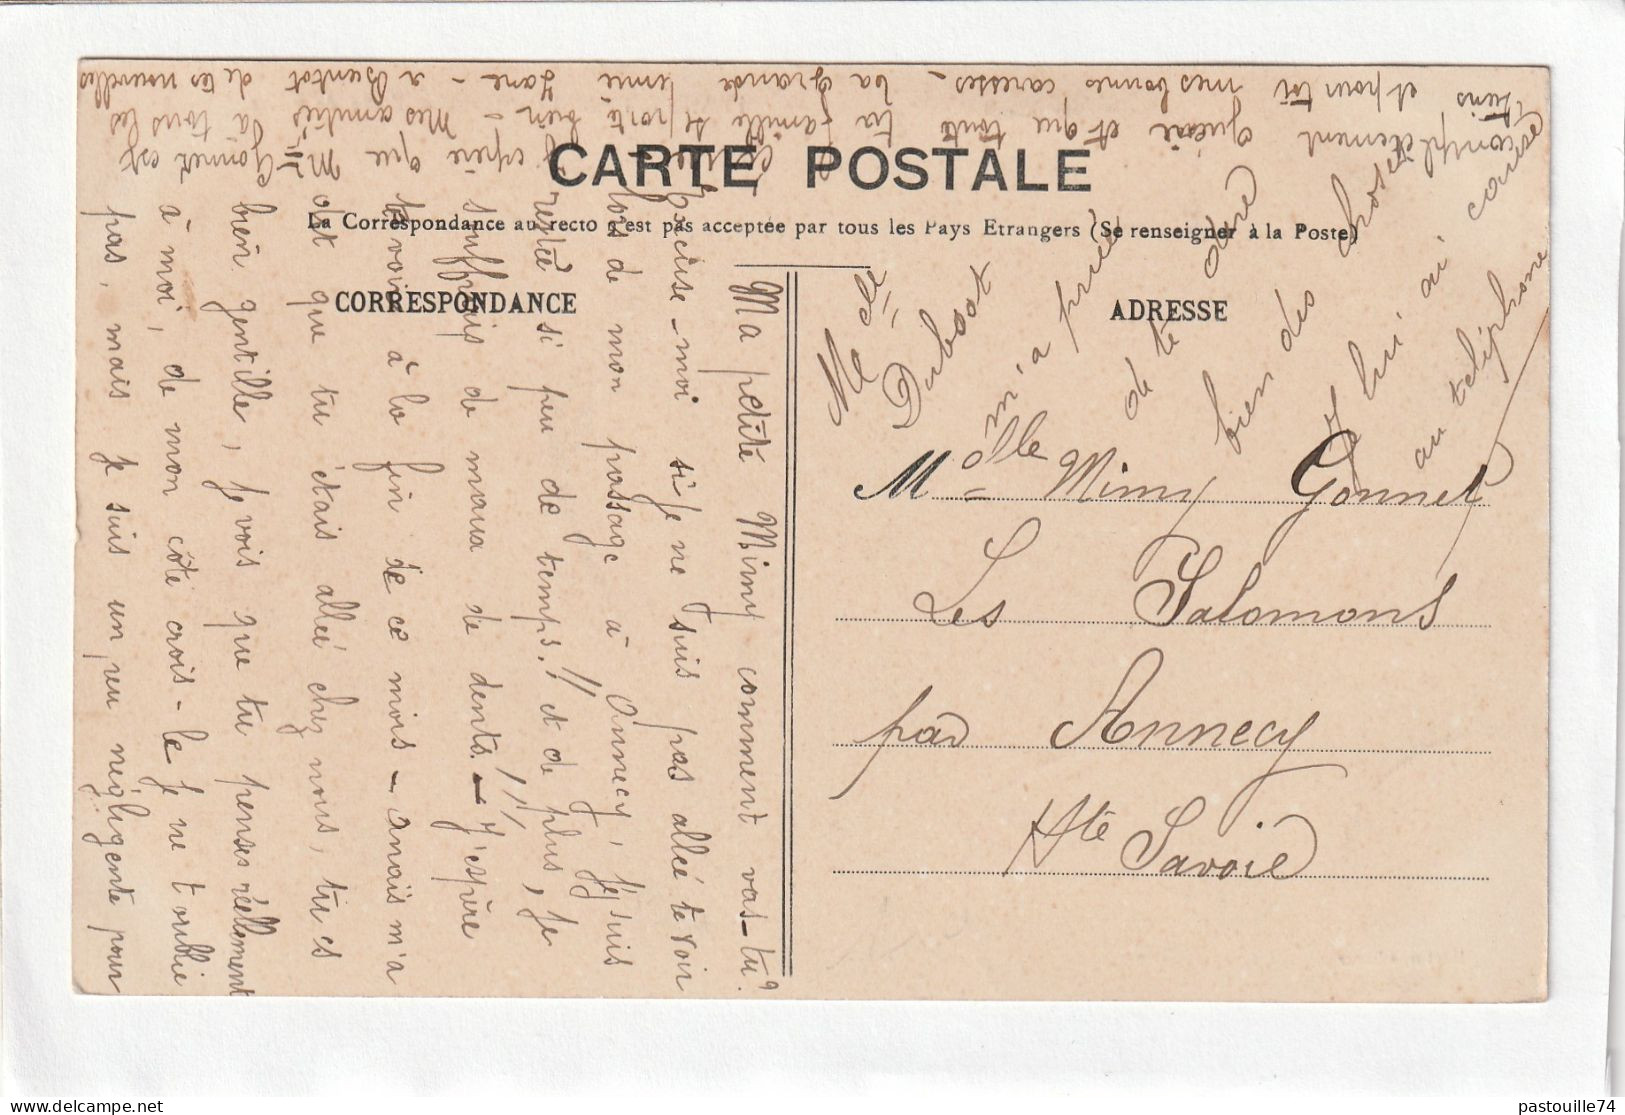 CARTE POSTALE
La Correspondance au recto n'est pas acceptée par tous les Pays Etrangers (Se renseigner à la Poste)
CORRESPONDANCE
ADRESSE
Ma petite Mimy comment vas-tu?
Excuse-moi si je ne suis pas allée te voir
lors de mon passage à Annecy, j'y suis
restée si peu de temps!! et de plus, je
souffrais de maux de dents!!! - J'espère
te voir à la fin de ce mois - Anaïs m'a
dit que tu étais allée chez nous, tu es
bien gentille, je vois que tu penses réellement
à moi, de mon côté crois-le je ne t'oublie
pas, mais je suis un peu négligente pour
Gonnet est
complètement guérie et que toute ta famille se porte bien - Mes amitiés à tous les
tiens et pour toi mes bonnes caresses - Ta grande amie - à Bientot de tes nouvelles
Melle
m'a priée
de te dire
bien des choses
je lui ai causé
au téléphone
Melle Mimy Gonnet
Les Salomons
par Annecy
Hte Savoie
pastouille74